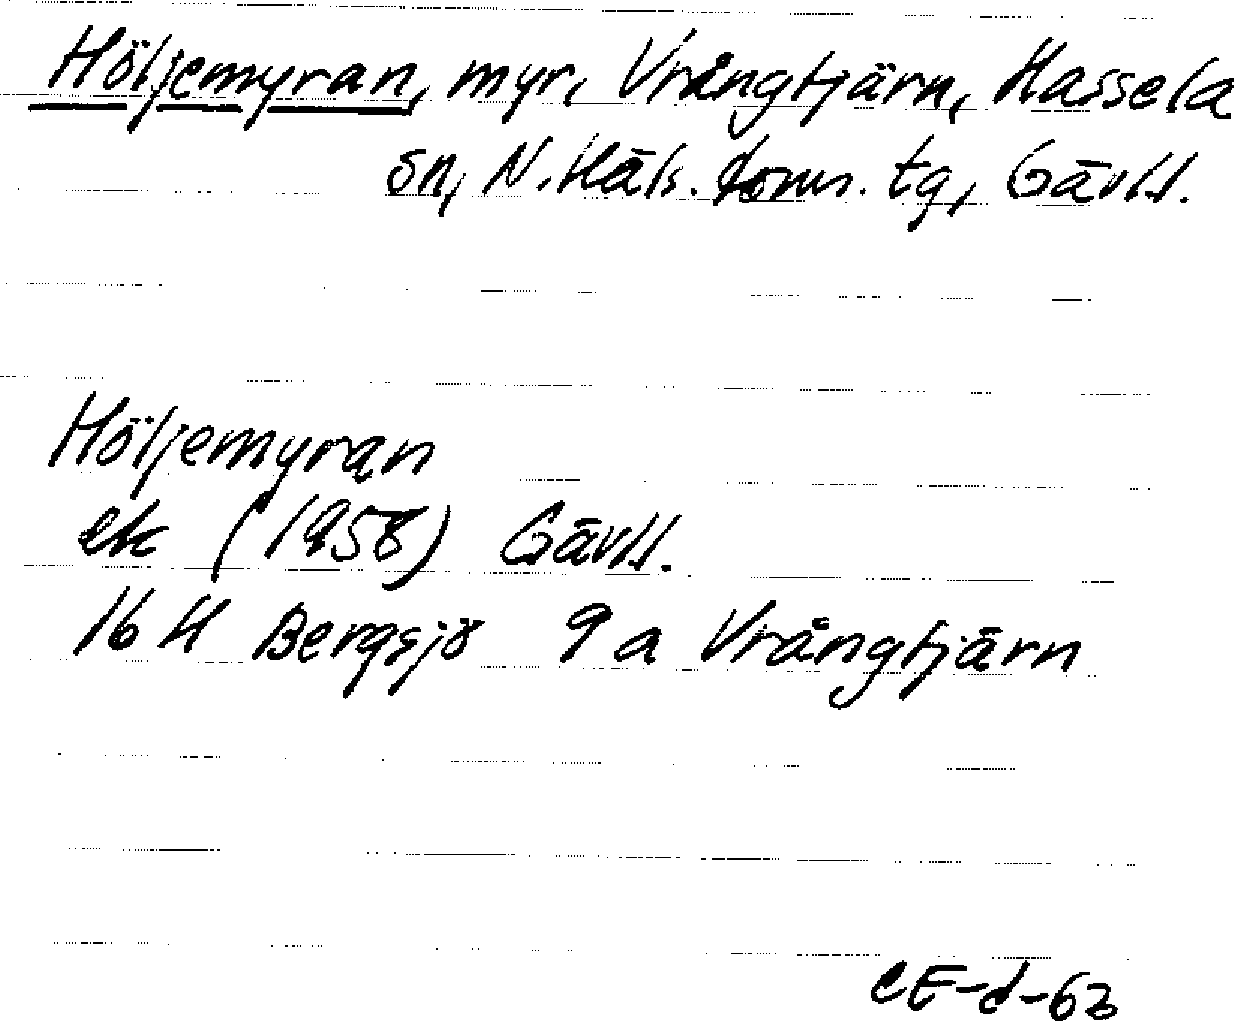 Höljemyran, myr, Vrångtjärn, Hassela
sn, N. Häls. doms. tg, Gävl.
Höljemyran
ek (1958) Gävl.
16 H Bergsjö 9 a Vrångtjärn
CE-d-63